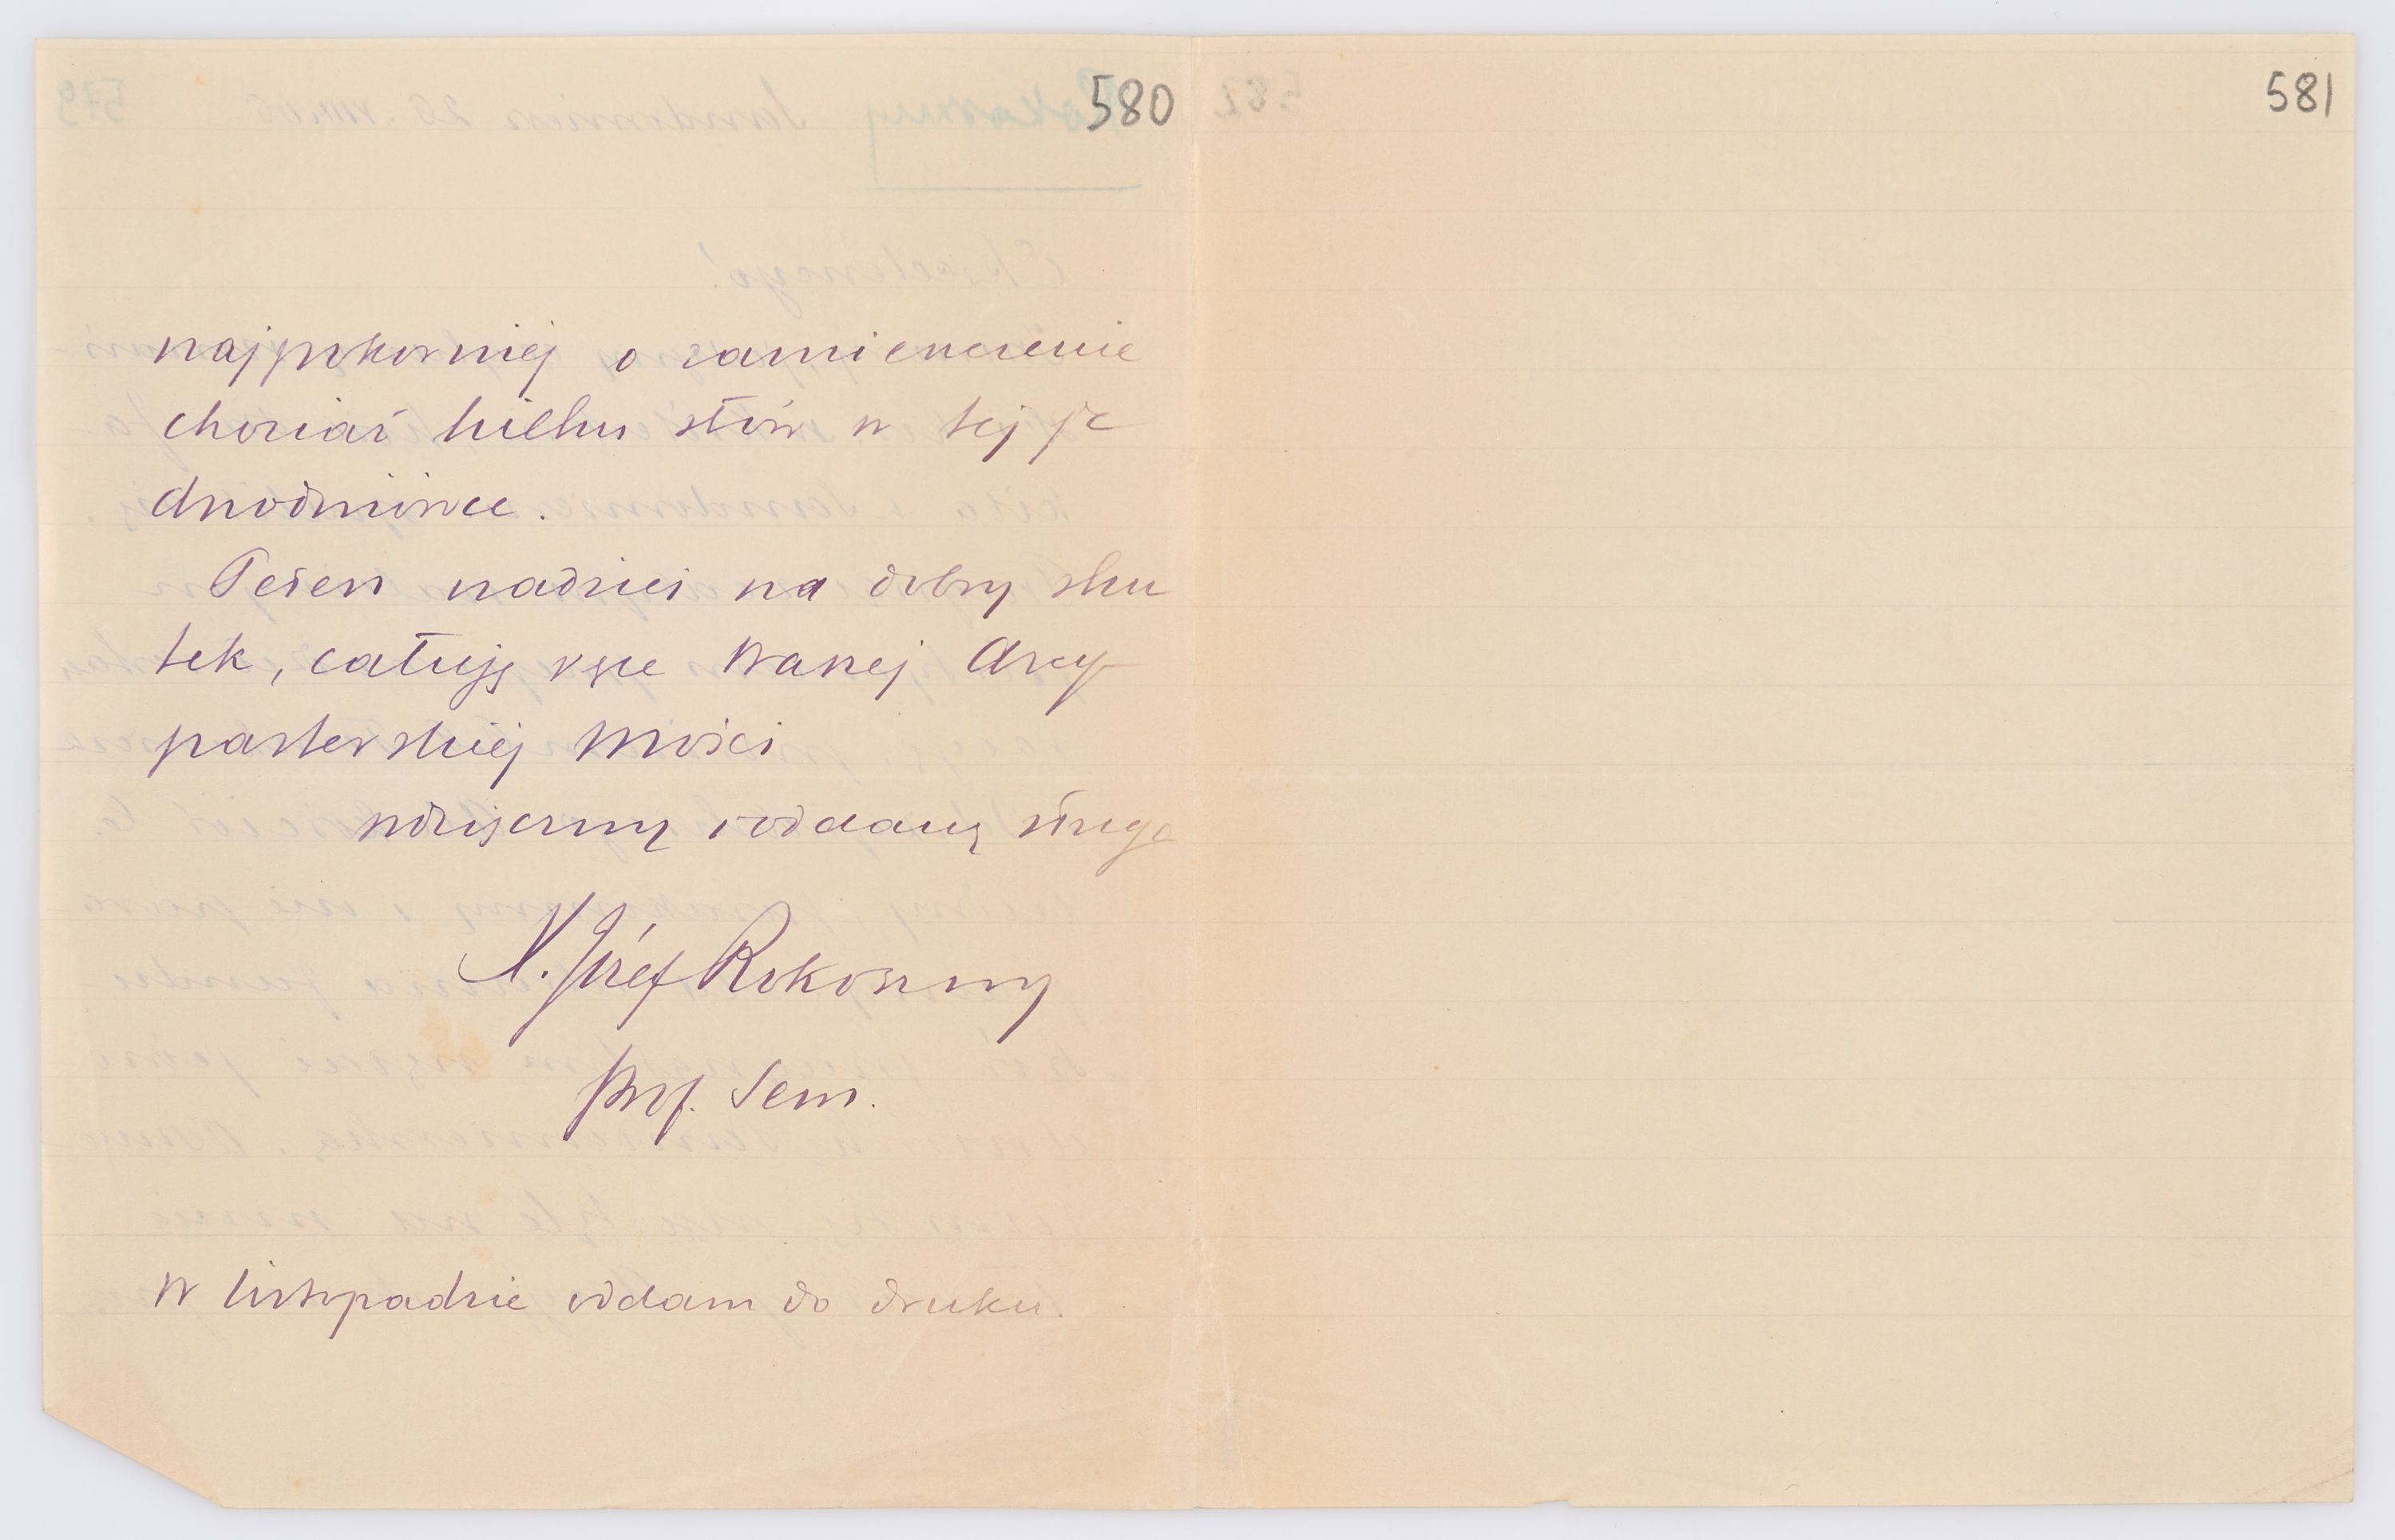 580
najpokorniej o zamieszczenie
chociaż kilku słów w tej je
dnodniówce.
Pełen nadziei na dobry sku
tek, całuję ręce Waszej Arcy-
pasterskiej Mości
wdzięczny i oddany sługa
X. Józef Rokoszny
Prof. Sem.
W listopadzie oddam do druku.
581